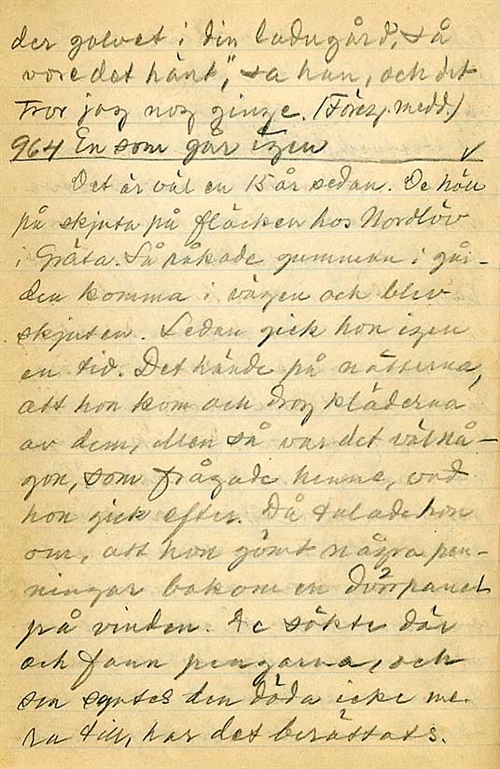 der golvet i din ladugård, så
vore det hänt", sa han, och det
tror jag nog ginge. (Föreg. medd.)
964 En som går igen
Det är väl en 15 år sedan. De höll
på skjuta på fläcken hos Nordlöv
i Gräsa. Så råkade gumman i går-
den komma i vägen och blev
skjuten. Sedan gick hon igen
en tid. Det hände på nätterna,
att hon kom och drog kläderna
av dem, men så var det väl nå-
gon, som frågade henne, vad
hon gick efter. Då talade hon
om, att hon gömt några pen-
ningar bakom en dörrpanel
på vinden. De sökte där
och fann pengarna, och
sen syntes den döda icke me-
ra till, har det berättats.